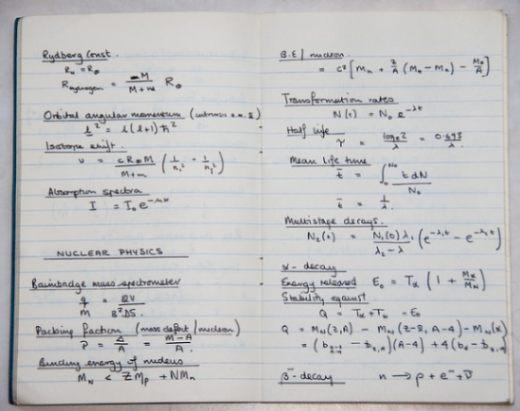 Rydberg Const.
R∞ = R∞
R hydrogen = M / M+m R∞
Orbital angular momentum (intrinsic a.m. s)
l² = l(l+1) ħ²
Isotope shift.
ν = c R∞ M / M+m (1/n₁² - 1/n₂²)
Absorption spectra
I = I₀ e^-μx
NUCLEAR PHYSICS
Bainbridge mass spectrometer
q/m =
Packing fraction (mass defect / nucleon)
P = Δ/A = M-A / A
Binding energy of nucleus
M_N < Z M_p + N M_n
B.E / nucleon
= c² [ M_n + Z/A (M_H - M_n) - M_a/A ]
Transformation rates
N(t) = N₀ e^-λt
Half life
τ = log_e 2 / λ = 0.693 / λ
Mean life time
t̄ = ∫₀^N₀ t dN / N₀
t̄ = 1/λ.
Multistage decays.
N₂(t) = N₁(0) λ₁ / λ₂ - λ₁ (e^-λ₁t - e^-λ₂t)
α - decay
Energy released E₀ = Tα (1 + Mα/M_N)
Stability against
Q = Tα + T = E₀
Q = M_N(Z,A) - M_N(Z-2, A-4) - M_N(α)
(A-4) + 4
β⁻ - decay n → p + e⁻ + ν̄